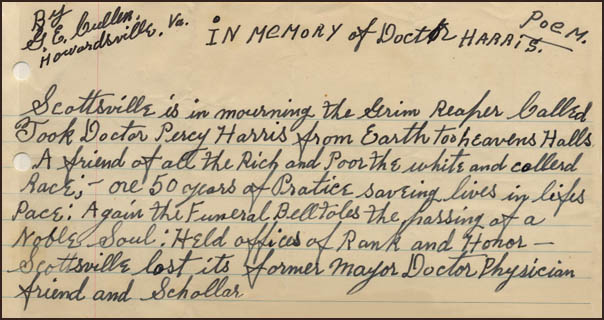 By
G. E. Cullen,
Howardsville, Va.
IN MEMORY of DoctOr HARRIS.
POEM.
Scottsville is in mourning the Grim Reaper Called
Took Doctor Percy Harris from Earth to heavens Halls
A friend of all the Rich and Poor the white and collerd
Race; – ore 50 years of Pratice saveing lives in lifes
Pace: Again the Funeral Bell toles the passing of a
Noble Soul: Held offices of Rank and Honor –
Scottsville lost its former Mayor Doctor Physician
friend and Schollar